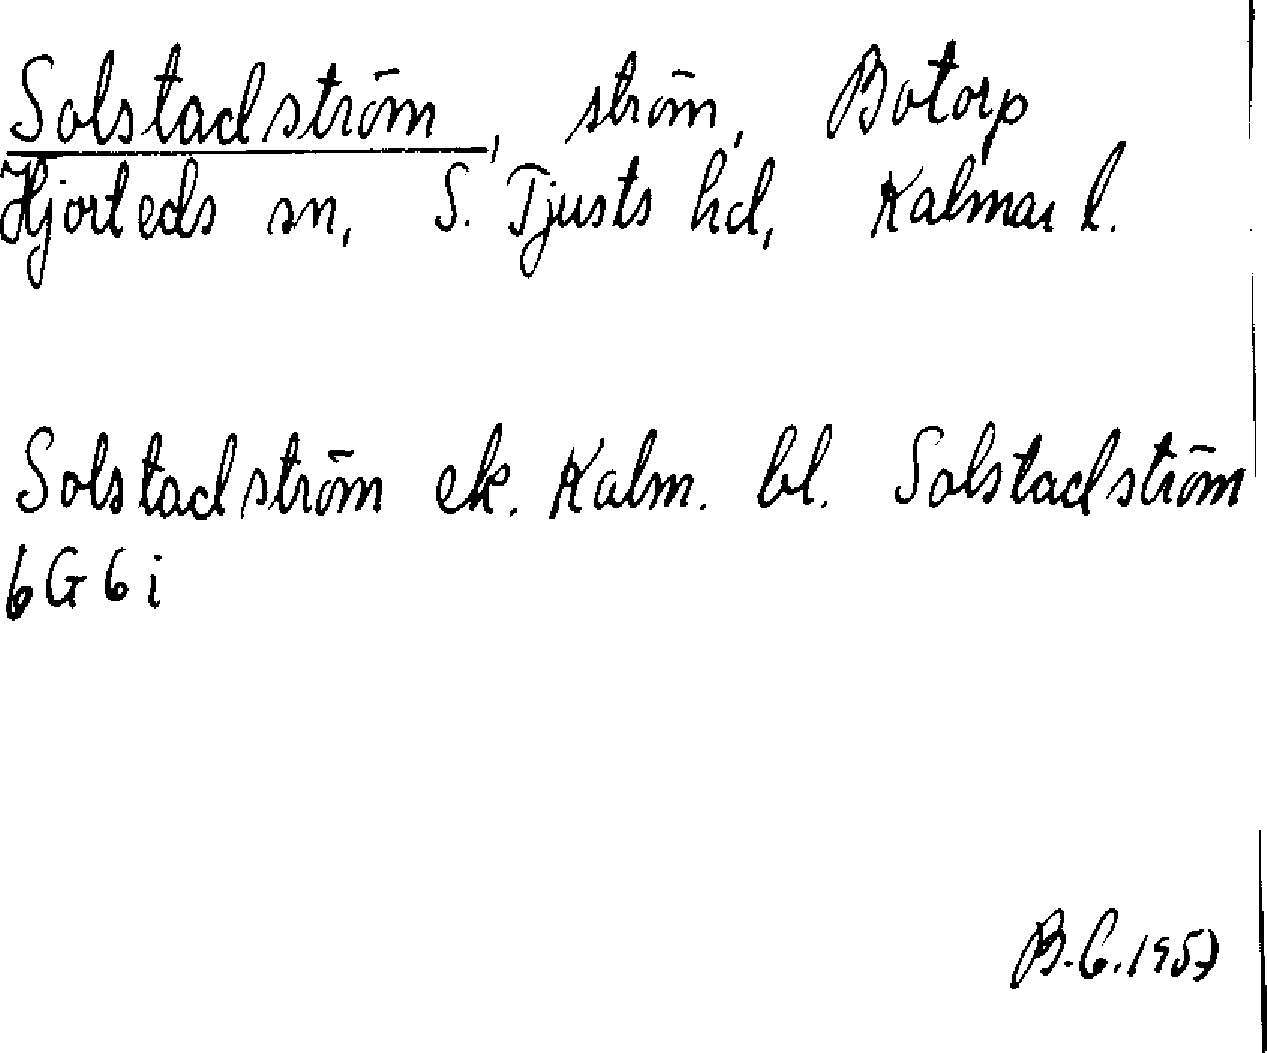 Solstadström, ström, Botorp
Hjorteds sn, S. Tjusts hd, Kalmar l.
Solstadström ek. Kalm. bl. Solstadström
6G6i
B.G. 1957